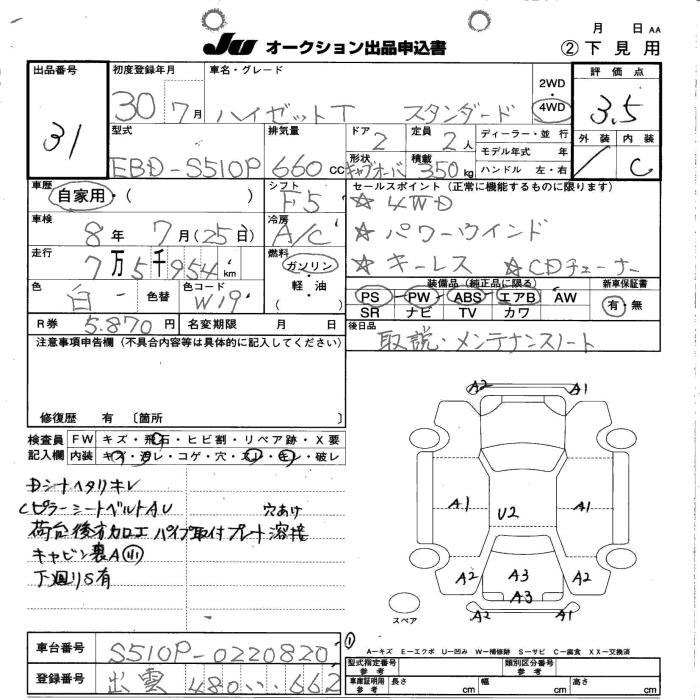 JU オークション出品申込書
月 日 AA
② 下見用
出品番号
31
初度登録年月
30 7月
車名・グレード
ハイゼットT スタンダード
2WD
4WD
評価点
3.5
外装 内装
C
型式
EBD-S510P
排気量
660 cc
ドア
2
定員
2 人
形状
キャブオーバ
積載
350 kg
ディーラー・並行
モデル年式 年
ハンドル 左・右
車歴
自家用・( )
シフト
F5
セールスポイント(正常に機能するものに限ります)
☆ 4WD
☆ パワーウインド
☆ キーレス ☆CDチューナー
車検
8年 7月(25日)
冷房
A/C
走行
7万5千954km
燃料
ガソリン・
軽・油
( )
色
白 色替
色コード
W19
装備品(純正品に限る)
PS PW ABS エアB AW
SR ナビ TV カワ
新車保証書
有・無
R券 5.870円
名変期限 月 日
後日品
取説・メンテナンスノート
注意事項申告欄(不具合内容等は具体的に記入してください)
修復歴 有 〔箇所 〕
検査員
記入欄
FW キズ・飛石・ヒビ割・リペア跡・X要
内装 キズ・汚レ・コゲ・穴・スレ・キレ・破レ
Dシートヘタリキレ
CピラーシートベルトAU 穴あけ
荷台後方加工 パイプ取付プレート溶接
キャビン裏A㊥
下廻りS有
A2 A1
A1 U2 A1
A2 A3 A2
A3
A2 A1
スペア
車台番号
S510P-0220820
登録番号
出雲 480 い 662
①
A-キズ E-エクボ U-凹み W-補修跡 S-サビ C-腐食 XX-交換済
型式指定番号
参考
類別区分番号
参考
車庫証明用
参考
長さ cm 幅 cm 高さ cm